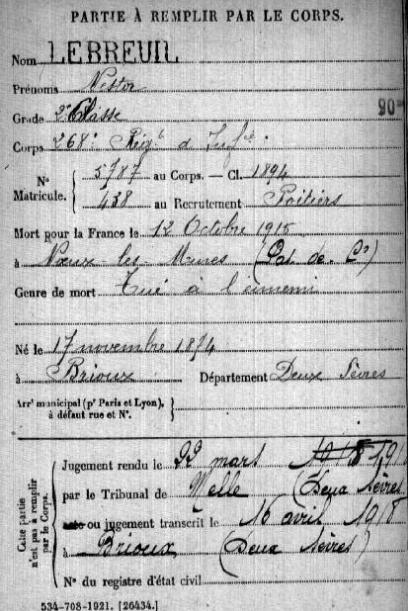 PARTIE À REMPLIR PAR LE CORPS.
Nom LEBREUIL
Prénoms Nestor
Grade 2e Classe
Corps 268e Régt d'Infie.
90
N° Matricule. { 5787 au Corps. — Cl. 1894
438 au Recrutement Poitiers
Mort pour la France le 12 Octobre 1915
à Nœux-les-Mines (Pas-de-Cs)
Genre de mort Tué à l'ennemi
Né le 17 novembre 1874
à Brioux Département Deux Sèvres
Arrt municipal (pr Paris et Lyon), à défaut rue et N°. }
Cette partie n'est pas à remplir par le Corps.
Jugement rendu le 22 mars 1918
par le Tribunal de Melle (Deux Sèvres
acte ou jugement transcrit le 16 avril 1918
à Brioux (Deux Sèvres)
N° du registre d'état civil
534-708-1921. [26434.]